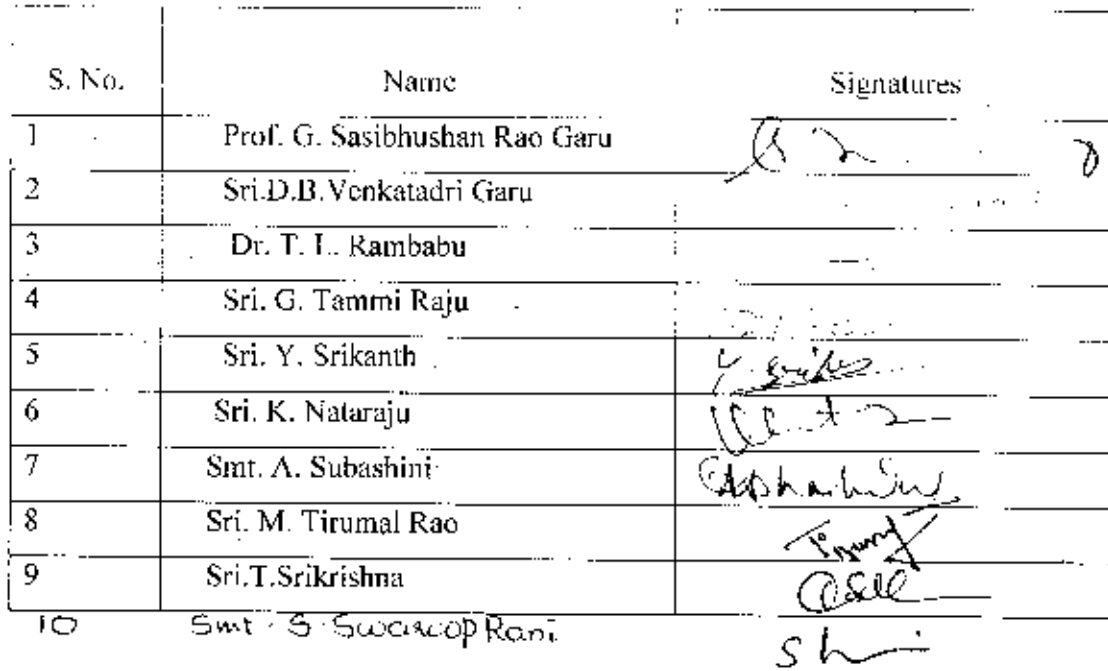 S. No. Name Signatures
1 Prof. G. Sasibhushan Rao Garu
2 Sri.D.B.Venkatadri Garu
3 Dr. T. L. Rambabu
4 Sri. G. Tammi Raju
5 Sri. Y. Srikanth
6 Sri. K. Nataraju
7 Smt. A. Subashini
8 Sri. M. Tirumal Rao
9 Sri.T.Srikrishna
10 Smt. S. Swaroop Rani